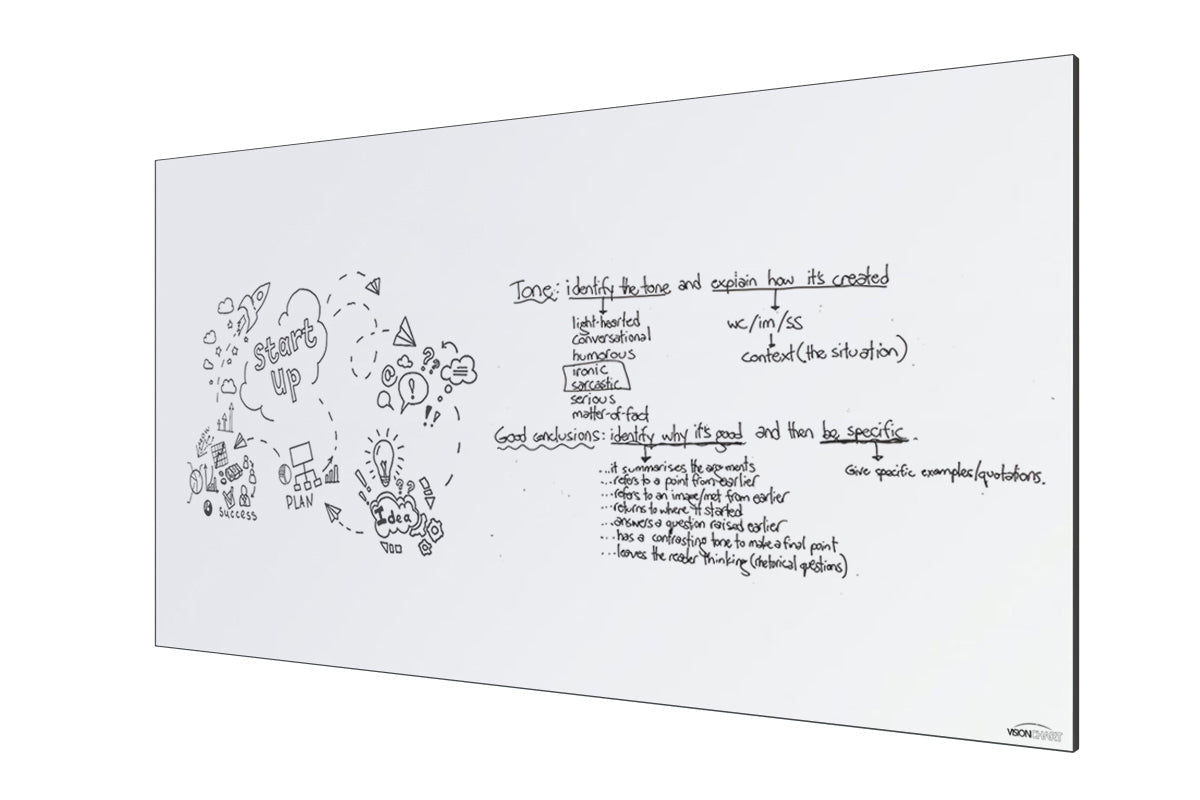 Start
Up
success
PLAN
Idea
Tone: identify the tone and explain how it's created
light-hearted
conversational
humorous
ironic
sarcastic
serious
matter-of-fact
wc/im/ss
context (the situation)
Good conclusions: identify why it's good and then be specific.
...it summarises the arguments
...refers to a point from earlier
...refers to an image/met from earlier
...returns to where it started
...answers a question raised earlier
...has a contrasting tone to make a final point
...leaves the reader thinking (rhetorical questions)
Give specific examples/quotations.
VISIONCHART